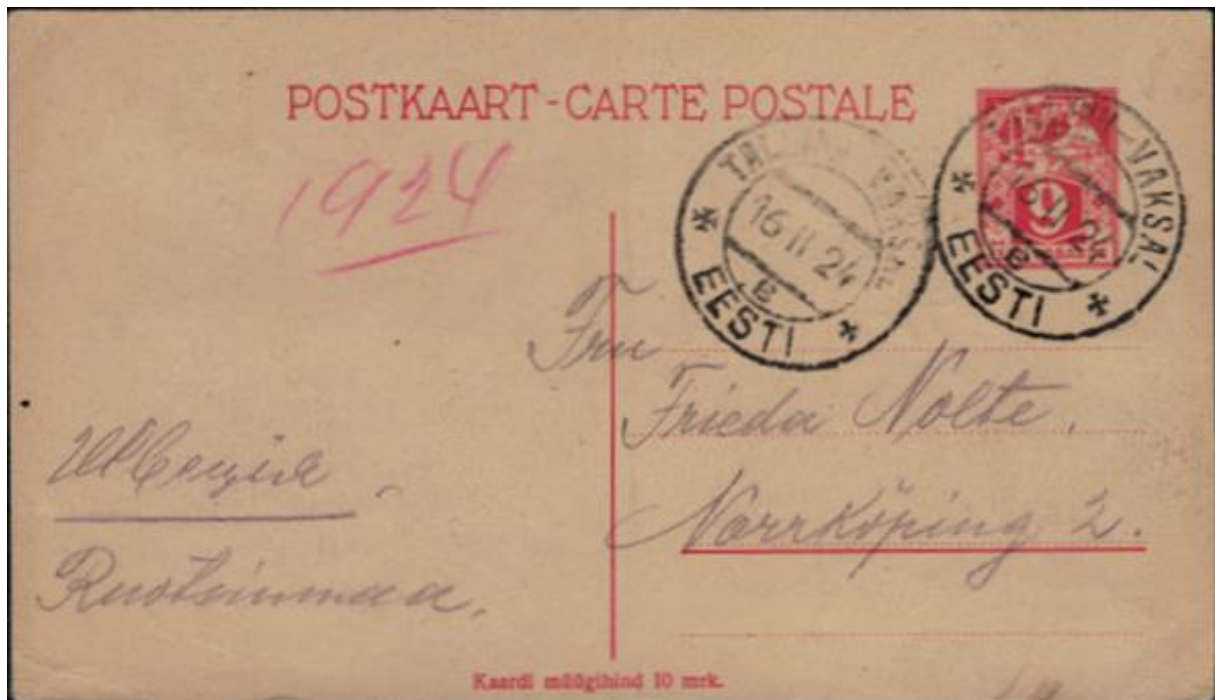 POSTKAART - CARTE POSTALE
1924
TALLINN-VAKSAL
16 II 24
e
EESTI
TALLINN-VAKSAL
16 II 24
e
EESTI
9
Fru
Frieda Nolte.
Norrköping 2.
Швеція
Ruotsinmaa.
Kaardi müügihind 10 mrk.